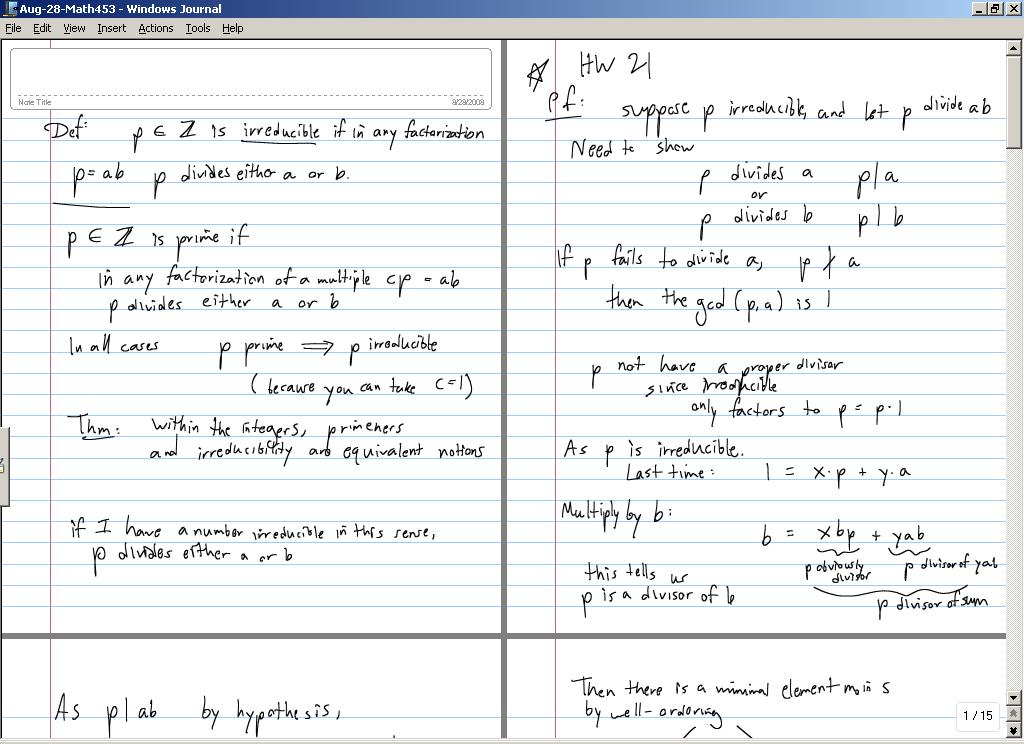 Aug-28-Math453 - Windows Journal
File Edit View Insert Actions Tools Help
Note Title
8/28/2008
Def: p ∈ ℤ is irreducible if in any factorization
p = ab p divides either a or b.
p ∈ ℤ is prime if
in any factorization of a multiple cp = ab
p divides either a or b
In all cases p prime ⟹ p irreducible
(because you can take c=1)
Thm: Within the integers, primeners
and irreducibility are equivalent notions
if I have a number irreducible in this sense,
p divides either a or b
As p|ab by hypothesis,
☆ HW 21
Pf: suppose p irreducible, and let p divide ab
Need to show
p divides a p|a
or
p divides b p|b
If p fails to divide a, p ∤ a
then the gcd(p,a) is 1
p not have a proper divisor
since irreducible
only factors to p = p·1
As p is irreducible.
Last time: 1 = x·p + y·a
Multiply by b:
b = xbp + yab
p obviously divisor
p divisor of yab
this tells us
p is a divisor of b
p divisor of sum
Then there is a minimal element m in S
by well-ordering
1 / 15